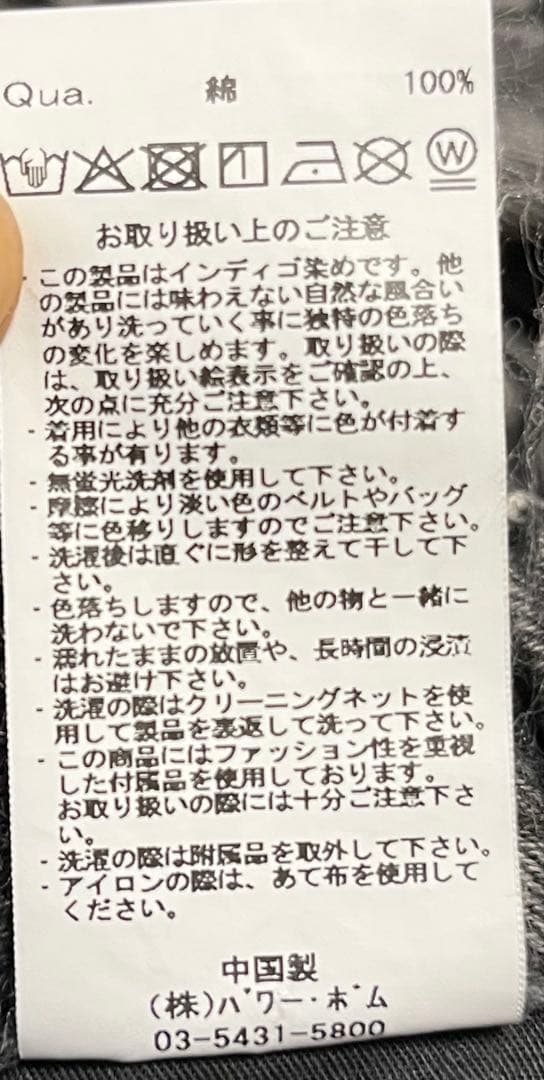 Qua. 綿 100%
W
お取り扱い上のご注意
- この製品はインディゴ染めです。他
の製品には味わえない自然な風合い
があり洗っていく事に独特の色落ち
の変化を楽しめます。取り扱いの際
は、取り扱い絵表示をご確認の上、
次の点に充分ご注意下さい。
- 着用により他の衣類等に色が付着す
る事が有ります。
- 無蛍光洗剤を使用して下さい。
- 摩擦により淡い色のベルトやバッグ
等に色移りしますのでご注意下さい。
- 洗濯後は直ぐに形を整えて干して下
さい。
- 色落ちしますので、他の物と一緒に
洗わないで下さい。
- 濡れたままの放置や、長時間の浸漬
はお避け下さい。
- 洗濯の際はクリーニングネットを使
用して製品を裏返して洗って下さい。
- この商品にはファッション性を重視
した付属品を使用しております。
お取り扱いの際には十分ご注意下さ
い。
- 洗濯の際は附属品を取外して下さい。
- アイロンの際は、あて布を使用して
ください。
中国製
(株)ﾊﾟﾜｰ･ﾎﾞﾑ
03-5431-5800